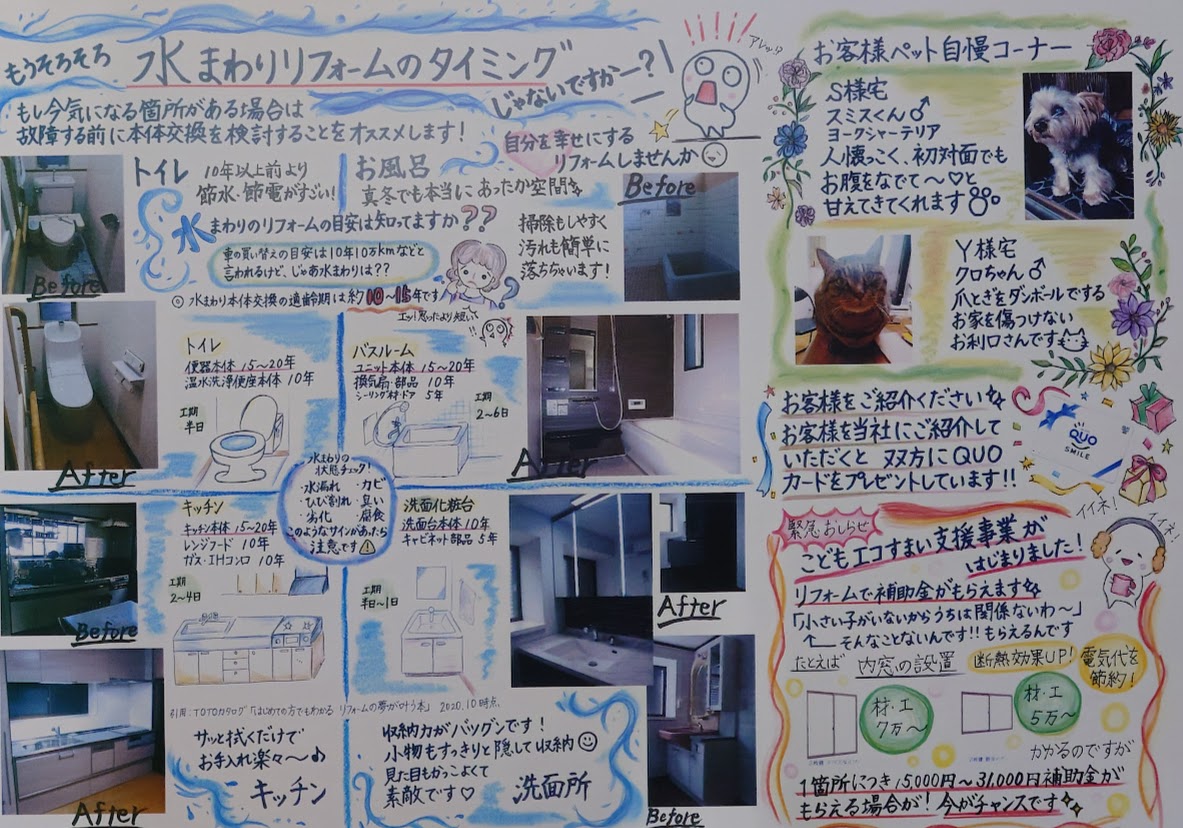 もうそろそろ 水まわりリフォームのタイミング
じゃないですかー?!
アレッ!?
もし今気になる箇所がある場合は
故障する前に本体交換を検討することをオススメします!
自分を幸せにする
リフォームしませんか
トイレ 10年以上前より
節水・節電がすごい!
お風呂
真冬でも本当にあったか空間
Before
Before
水まわりのリフォームの目安は知ってますか??
車の買い替えの目安は10年10万kmなどと
言われるけど、じゃあ水まわりは??
◎ 水まわり本体交換の適齢期は約10〜15年です
エッ!思ったより短い
掃除もしやすく
汚れも簡単に
落ちちゃいます!
トイレ
便器本体 15〜20年
温水洗浄便座本体 10年
工期
半日
After
バスルーム
ユニット本体 15〜20年
換気扇・部品 10年
シーリング材・ドア 5年
工期
2〜6日
After
水まわりの
状態チェック!
・水漏れ ・カビ
・ひび割れ ・臭い
・劣化 ・腐食
このようなサインがあったら
注意です
キッチン
キッチン本体 15〜20年
レンジフード 10年
ガス・IHコンロ 10年
工期
2〜4日
Before
洗面化粧台
洗面台本体 10年
キャビネット部品 5年
工期
半日〜1日
After
引用:TOTOカタログ「はじめての方でもわかる リフォームの夢が叶う本」 2020.10時点
サッと拭くだけで
お手入れ楽々〜♪
キッチン
After
収納力がバツグンです!
小物もすっきりと隠して収納
見た目もかっこよくて
素敵です♡
洗面所
Before
お客様ペット自慢コーナー
S様宅
スミスくん♂
ヨークシャーテリア
人懐っこく、初対面でも
お腹をなでて〜♡と
甘えてきてくれます
Y様宅
クロちゃん♂
爪とぎをダンボールでする
お家を傷つけない
お利口さんです
お客様をご紹介ください
お客様を当社にご紹介して
いただくと 双方にQUO
カードをプレゼントしています!!
QUO
SMILE
緊急おしらせ
イイネ!
イイネ!
こどもエコすまい支援事業が
はじまりました!
リフォームで補助金がもらえます
「小さい子がいないからうちは関係ないわ〜」
そんなことないんです!!もらえるんです
たとえば 内窓の設置
断熱効果UP!
電気代を
節約!
材・工
7万〜
材・工
5万〜
かかるのですが
1箇所につき15,000円〜31,000円補助金が
もらえる場合が!今がチャンスです